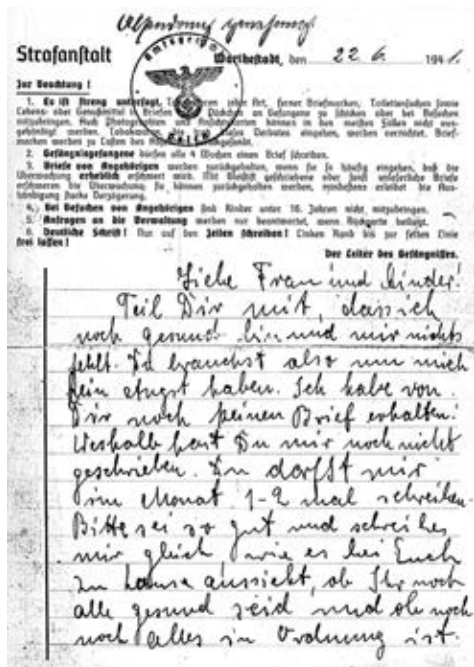 Absendung genehmigt
Strafanstalt
Warthestadt, den 22.6. 1941.
Zur Beachtung!
1. Es ist streng untersagt, jeder Art, ferner Briefmarken, Toilettensachen sowie
Lebens- oder Genußmittel in Briefen Päckchen an Gefangene zu schicken oder bei Besuchen
mitzubringen. Auch Photographien und können in den meisten Fällen nicht aus-
gehändigt werden. dieses Verbotes eingehen, werden vernichtet. Brief-
marken werden zu Lasten des
2. Gefängnisgefangene dürfen alle 4 Wochen einen Brief schreiben.
3. Briefe von Angehörigen werden zurückgehalten, wenn sie so häufig eingehen, daß die
Überwachung erheblich erschwert wird. Mit Bleistift geschriebene oder sonst unleserliche Briefe
erschweren die Überwachung; sie können zurückgehalten werden, mindestens erleidet die Aus-
händigung starke Verzögerung.
4. Bei Besuchen von Angehörigen sind Kinder unter 16 Jahren nicht mitzubringen.
5. Anfragen an die Verwaltung werden nur beantwortet, wenn Rückporto beiliegt.
6. Deutliche Schrift! Nur auf den Zeilen schreiben! Linken Rand bis zur fetten Linie
frei lassen!
Der Leiter des Gefängnisses.
Liebe Frau und Kinder!
Teil Dir mit, dass ich
noch gesund bin und mir nichts
fehlt. Du brauchst also um mich
kein Angst haben. Ich habe von
Dir noch keinen Brief erhalten.
Weshalb hast Du mir noch nicht
geschrieben. Du darfst mir
im Monat 1-2 mal schreiben
Bitte sei so gut und schreibe
mir gleich wie es bei Euch
zu Hause aussieht, ob Ihr noch
alle gesund seid und ob noch
noch alles in Ordnung ist.